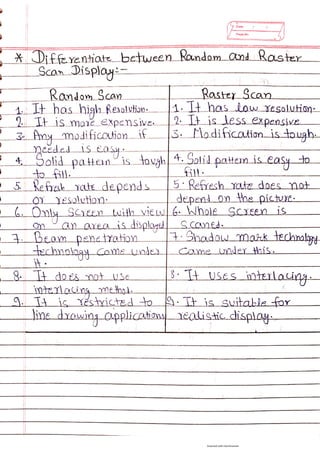 Date
Page No.
* Differentiate between Random and Raster
Scan Display:-
Random Scan
Raster Scan
1. It has high Resolution.
1. It has low resolution.
2. It is more expensive.
2. It is less expensive
3. Any modification if
needed is easy.
3. Modification is tough.
4. Solid pattern is tough
to fill.
4. Solid pattern is easy to
fill.
5. Refresh rate depends
or resolution.
5. Refresh rate does not
depend on the picture.
6. Only Screen with view
on an area is displayed
6. Whole Screen is
Scaned.
7. Beam penetration
technology come under
it.
7. Shadow mark technology
came under this.
8. It does not use
interlacing method.
8. It uses interlacing.
9. It is restricted to
line drawing applications
9. It is suitable for
realistic display.
Scanned with CamScanner